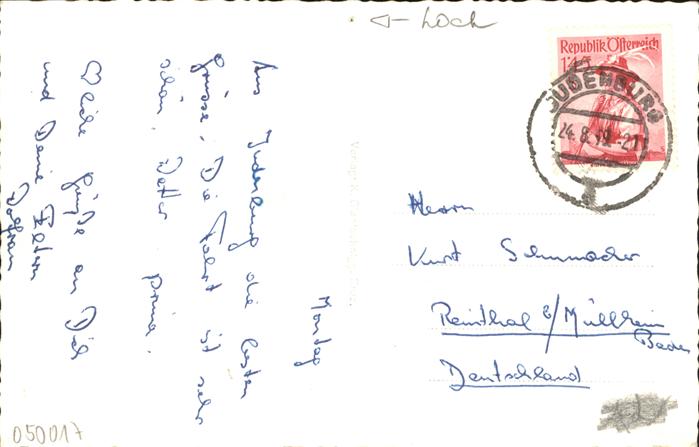 ← Loch
Republik Österreich
1'45
JUDENBURG
24.8.49.-21
Montag
Aus Judenburg die besten
Grüsse. Die Fahrt ist sehr
schön, Wetter prima.
♡liche Grüße an Dich
und Deine Eltern
Herrn
Kurt Schumacher
Reinthal b/Müllheim
Baden
Deutschland
050017